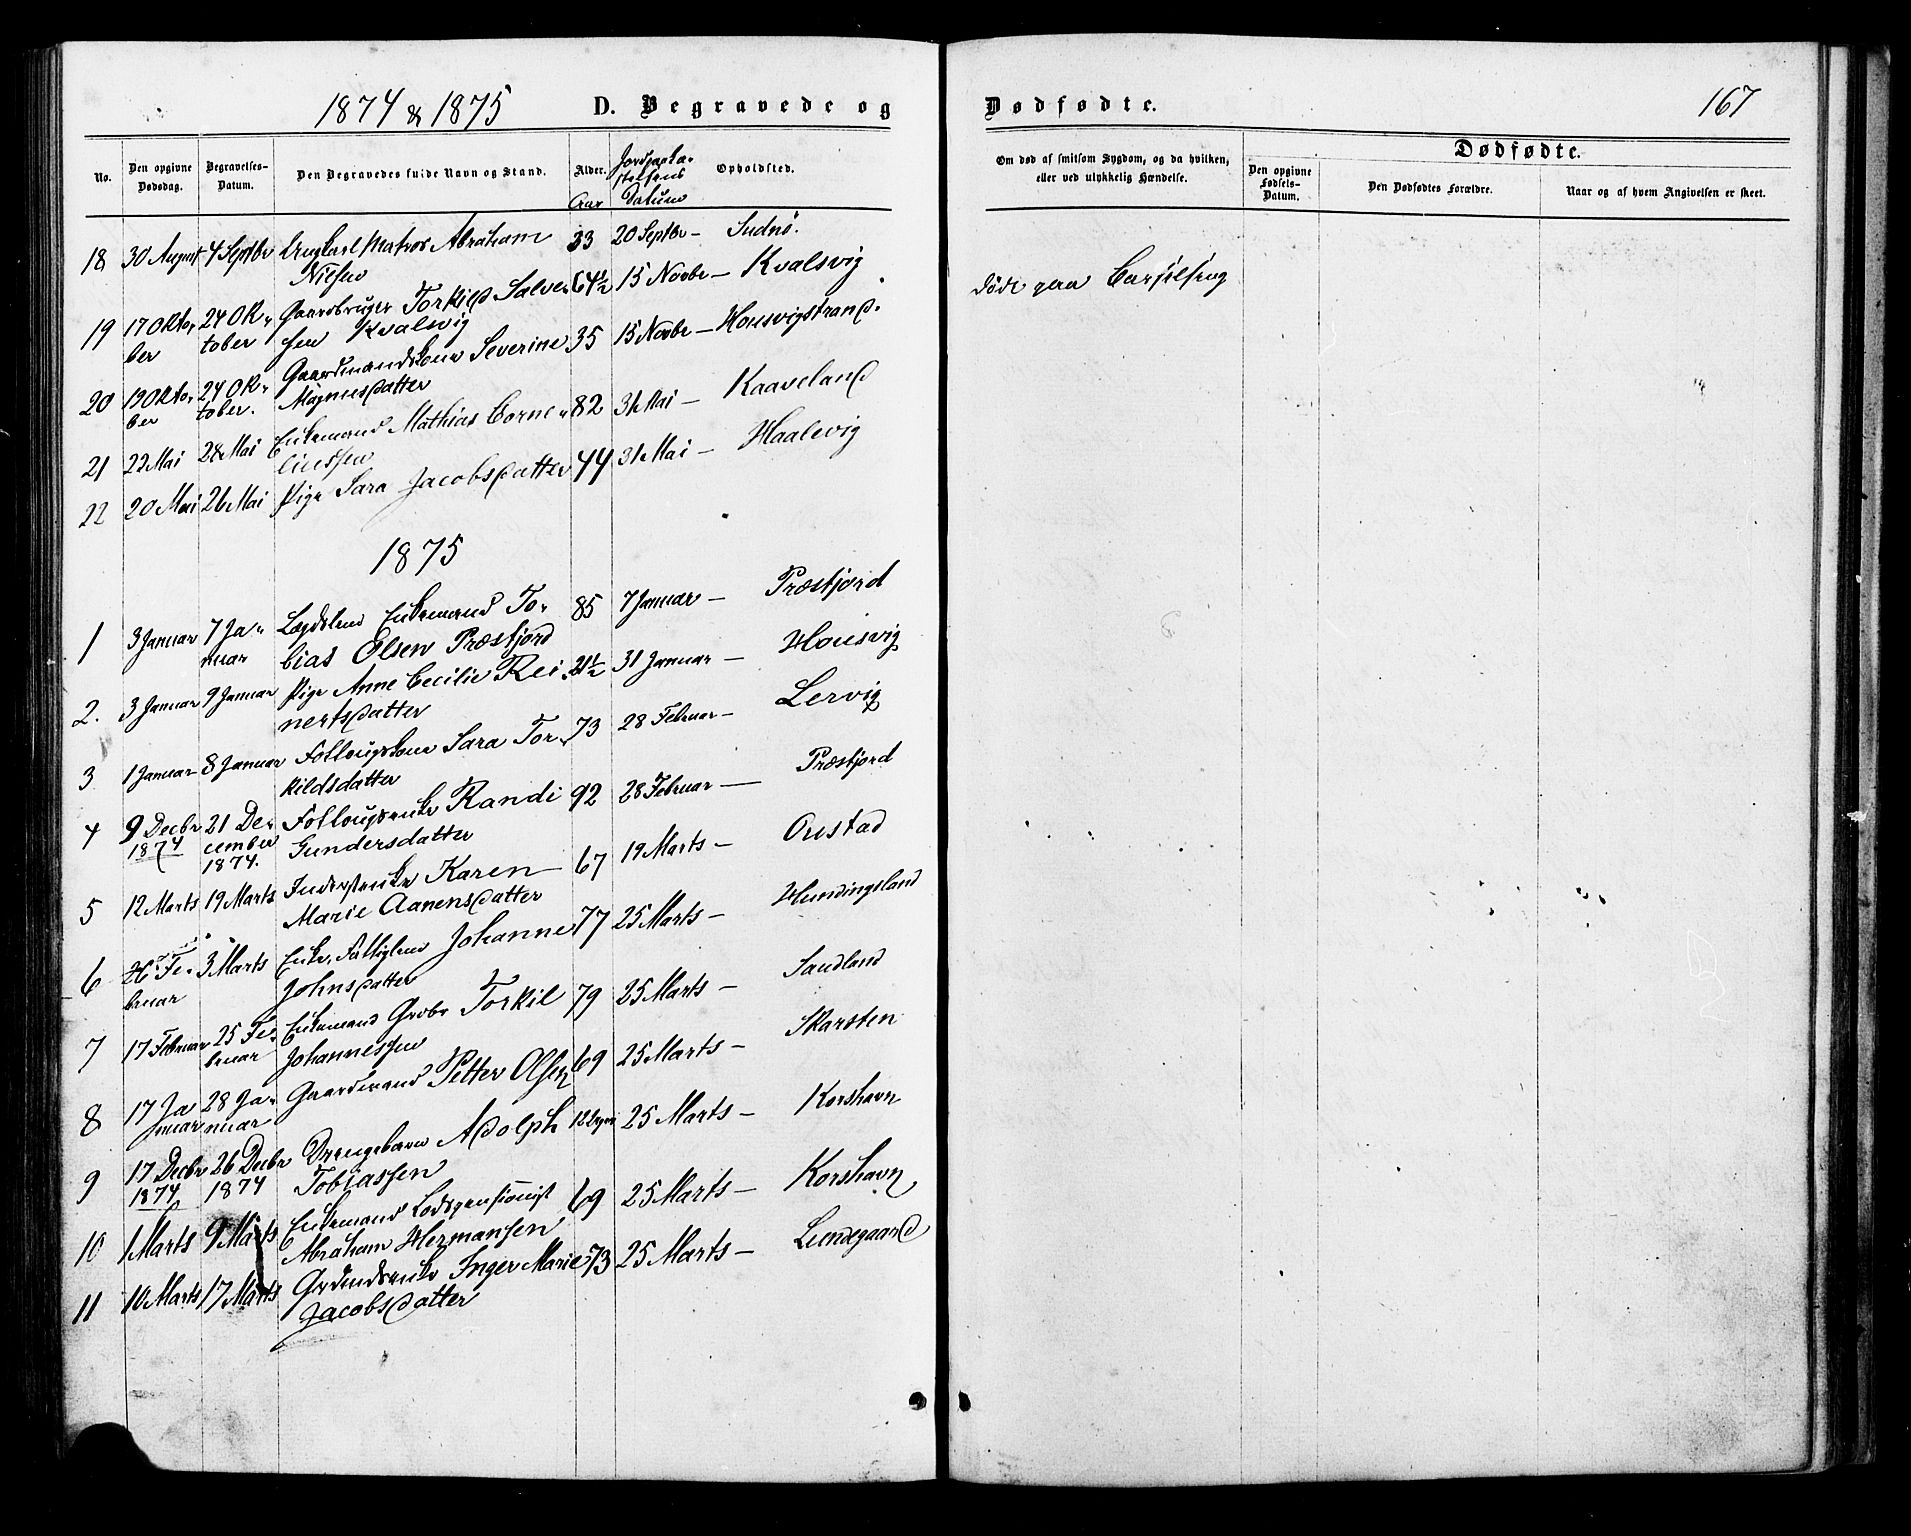 1874 & 1875 D. Begravede og
No. Den opgivne Dødsdag. Begravelses-Datum. Den Begravedes fulde Navn og Stand. Alder. Aar Jordpaaka-stelsens Datum Opholdsted.
18 30 August 4 Septbr Ungkarl Matros Abraham 33 20 Septbr – Sudnø.
Nilsen
19 17 Okto- 24 Ok- Gaardbruger Torkild Salve- 64½ 15 Novbr – Kvalsvig
ber tober sen Kvalsvig
20 19 Okto- 24 Ok- Gaardmandskone Severine 35 15 Novbr – Housvigstrand.
ber tober. Magnusdatter
21 22 Mai 28 Mai Enkemand Mathias Corne- 82 31 Mai – Kaaveland
liussen
22 20 Mai 26 Mai Pige Sara Jacobsdatter 44 31 Mai – Haalevig
1875
1 3 Januar 7 Ja- Lægdslem Enkemand To- 85 7 Januar – Præstjord
nuar bias Olsen Præstjord
2. 3 Januar 9 Januar Pige Anne Cecilie Rei- 21½ 31 Januar – Housvig
nertsdatter
3 1 Januar 8 Januar Follougskone Sara Tor- 73 28 Februar – Lervig
kildsdatter
4 9 Decbr 21 De- Follougsenke Randi 92 28 Februar – Præstjord
1874 cember Gundersdatter
1874.
5 12 Marts 19 Marts Inderstenke Karen 67 19 Marts – Oustad
Marie Aanensdatter
6 26 Fe- 3 Marts Enke, Fattiglem Johanne 77 25 Marts – Hundingsland
bruar Johnsdatter
7 17 Februar 25 Fe- Enkemand Torkil 79 25 Marts – Sandland
bruar Johannessen
8 17 Ja 28 Ja- Gaardmand Petter Olsen 69 25 Marts – Skarsten
nuar nuar
9 17 Decbr 26 Decbr Drengebarn Adolph 12 25 Marts – Korshavn
1874 1874 Tobiassen
10 1 Marts 9 Marts Enkemand Lodspensionist 69 25 Marts – Korshavn
Abraham Hermansen
11 10 Marts 17 Marts Inger Marie 73 25 Marts – Lundegaard
Jacobsdatter
Dødfødte. 167
Om død af smitsom Sygdom, og da hvilken, eller ved ulykkelig Hændelse. Dødfødte.
Den opgivne Fødsels-Datum. Den Dødfødtes Forældre. Naar og af hvem Angivelsen er skeet.
døde paa